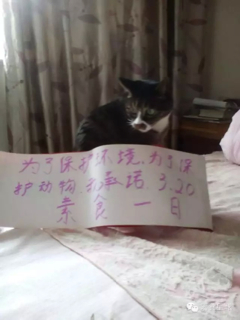 为了保护环境、为了保
护动物，我承诺 3.20
素食一日